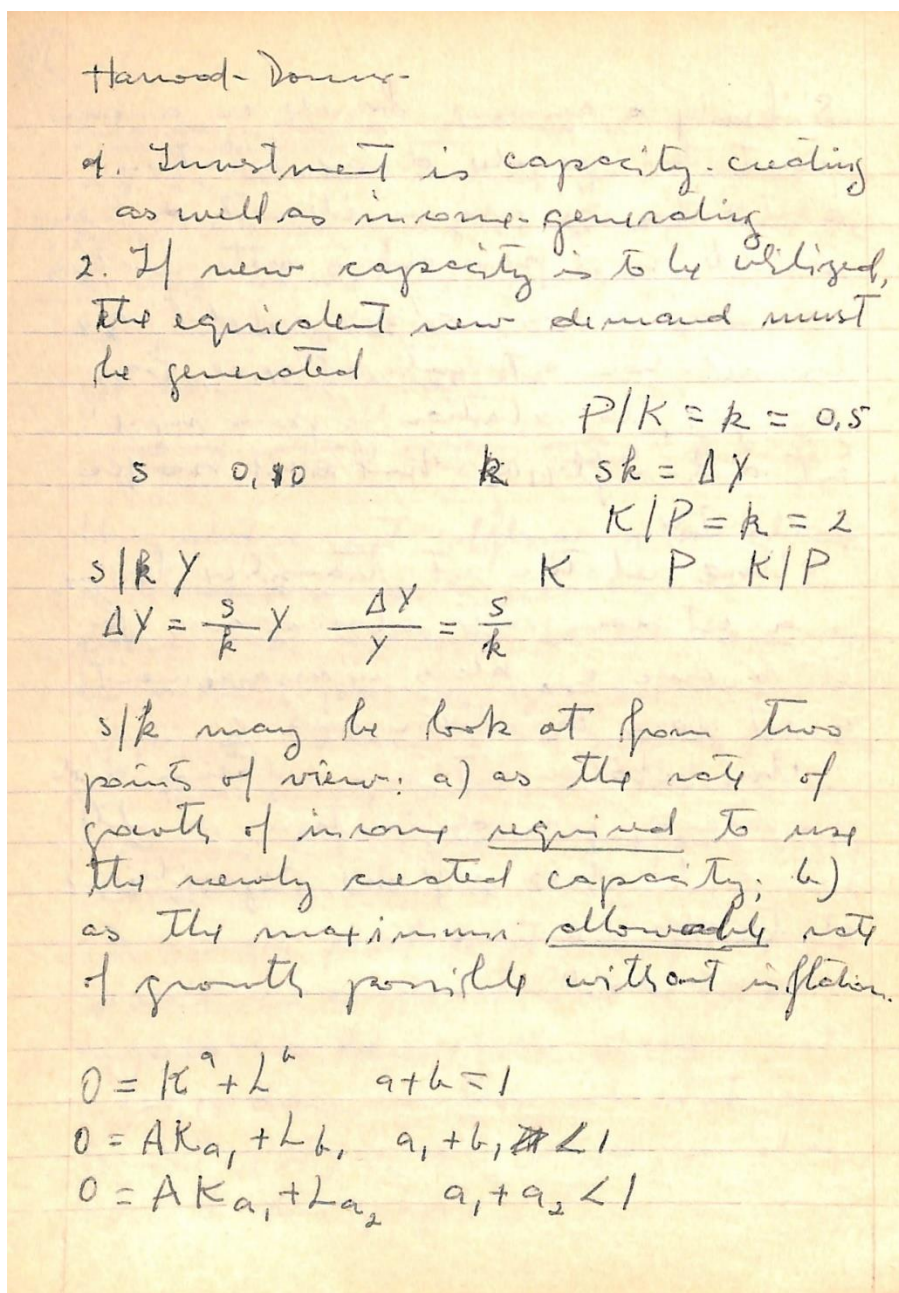 Harrod-Domar
1. Investment is capacity-creating
as well as income-generating
2. If new capacity is to be utilized,
the equivalent new demand must
be generated
P/K = k = 0,5
s 0,10 k sk = ΔY
K/P = k = 2
s/k Y K P K/P
ΔY = s/k Y ΔY/Y = s/k
s/k may be look at from two
points of view: a) as the rate of
growth of income required to use
the newly created capacity; b)
as the maximum allowable rate
of growth possible without inflation.
O = K^a + L^b a+b=1
O = AKa₁ + Lb₁ a₁+b₁ < 1
O = AKa₁ + La₂ a₁+a₂ < 1